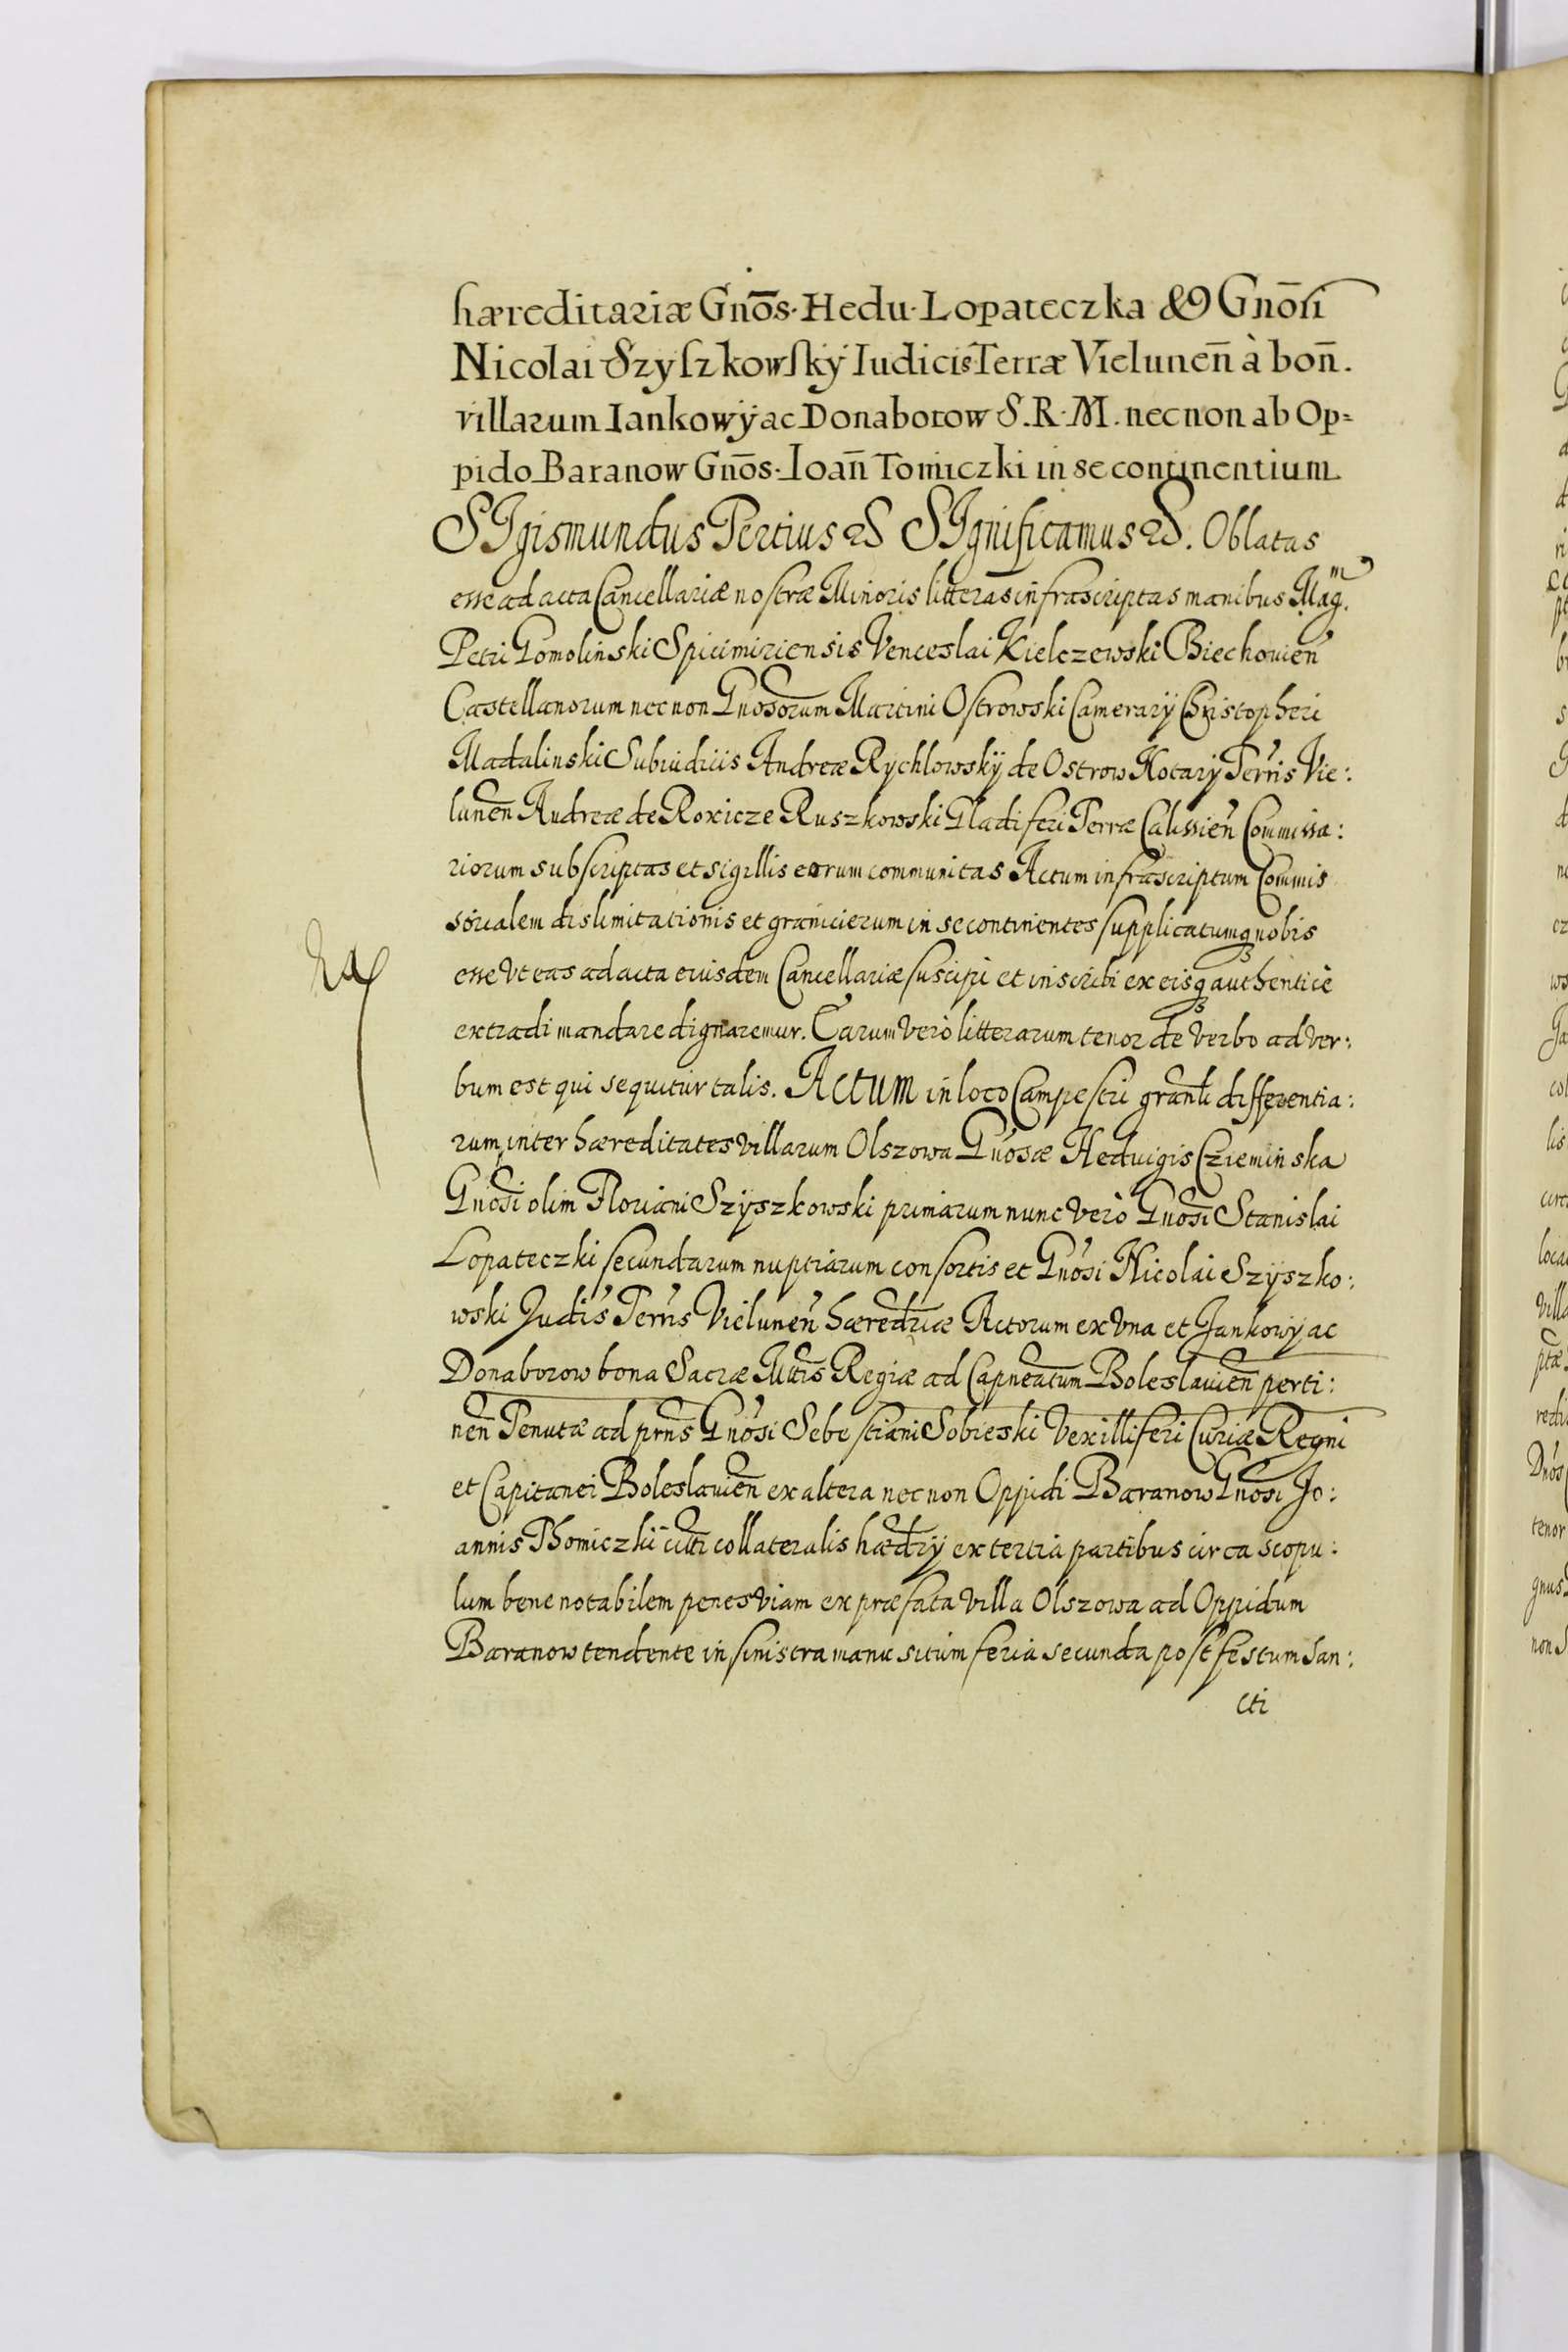 hæreditariæ Gnōs. Hedu. Lopateczka & Gnōsi
Nicolai Szyszkowsky Iudicis Terræ Vielunen̄ à bon̄.
villarum Iankowÿ ac Donaborow S. R. M. necnon ab Op=
pido Baranow Gnōs. Ioan̄ Tomiczki in se continentium
SIgismundus Tertius &c SIgnificamus &c. Oblatas
esse ad acta Cancellariæ nostræ Minoris litteras infrascriptas manibus Mag.m
Petri Gomolinski Spicimiriensis Venceslai Kielczewski Biechouien̄
Castellanorum necnon Gnosorum Martini Ostrowski Camerarÿ Christopheri
Madalinski Subiudicis Andreæ Rychlowskÿ de Ostrow Notarÿ Terris Vie:
lunen̄ Andreæ de Roxicze Ruszkowski Gladiferi Terræ Calissien̄ Commissa:
riorum subscriptas et sigillis eorum communitas Actum infrascriptum Commis
sorialem dislimitationis et granicierum in se continentes supplicatumq nobis
esse Vt eas ad acta eiusdem Cancellariæ suscipi et inscribi ex eisq authenticè
extradi mandare dignaremur. Earum verò litterarum tenor de Verbo ad ver:
bum est qui sequitur talis. ACTUM in loco Campestri granli differentia:
rum inter hæreditates villarum Olszowa Gnosæ Heduigis Czieminska
Gnosi olim Floriani Szÿszkowski primarum nunc Verò Gnosi Stanislai
Lopateczki secundarum nuptiarum consortis et Gnosi Nicolai Szÿszko:
wski Judis Terris Vielunen̄ hæredriæ Actorum ex Vna et Jankowÿ ac
Donaborow bona Sacræ Mttis Regiæ ad Capneatum Boleslauien̄ perti:
nen̄ Tenutæ ad prns Gnosi Sebestiani Sobieski Vexilliferi Curiæ Regni
et Capitanei Boleslauien̄ ex altera necnon Oppidi Baranow Gnosi Jo:
annis Thomiczki citti collateralis hædrÿ ex tertia partibus circa scopu:
lum bene notabilem penes Viam ex præfata Villa Olszowa ad Oppidum
Baranow tendente in sinistra manu situm feria secunda post festum San:
cti